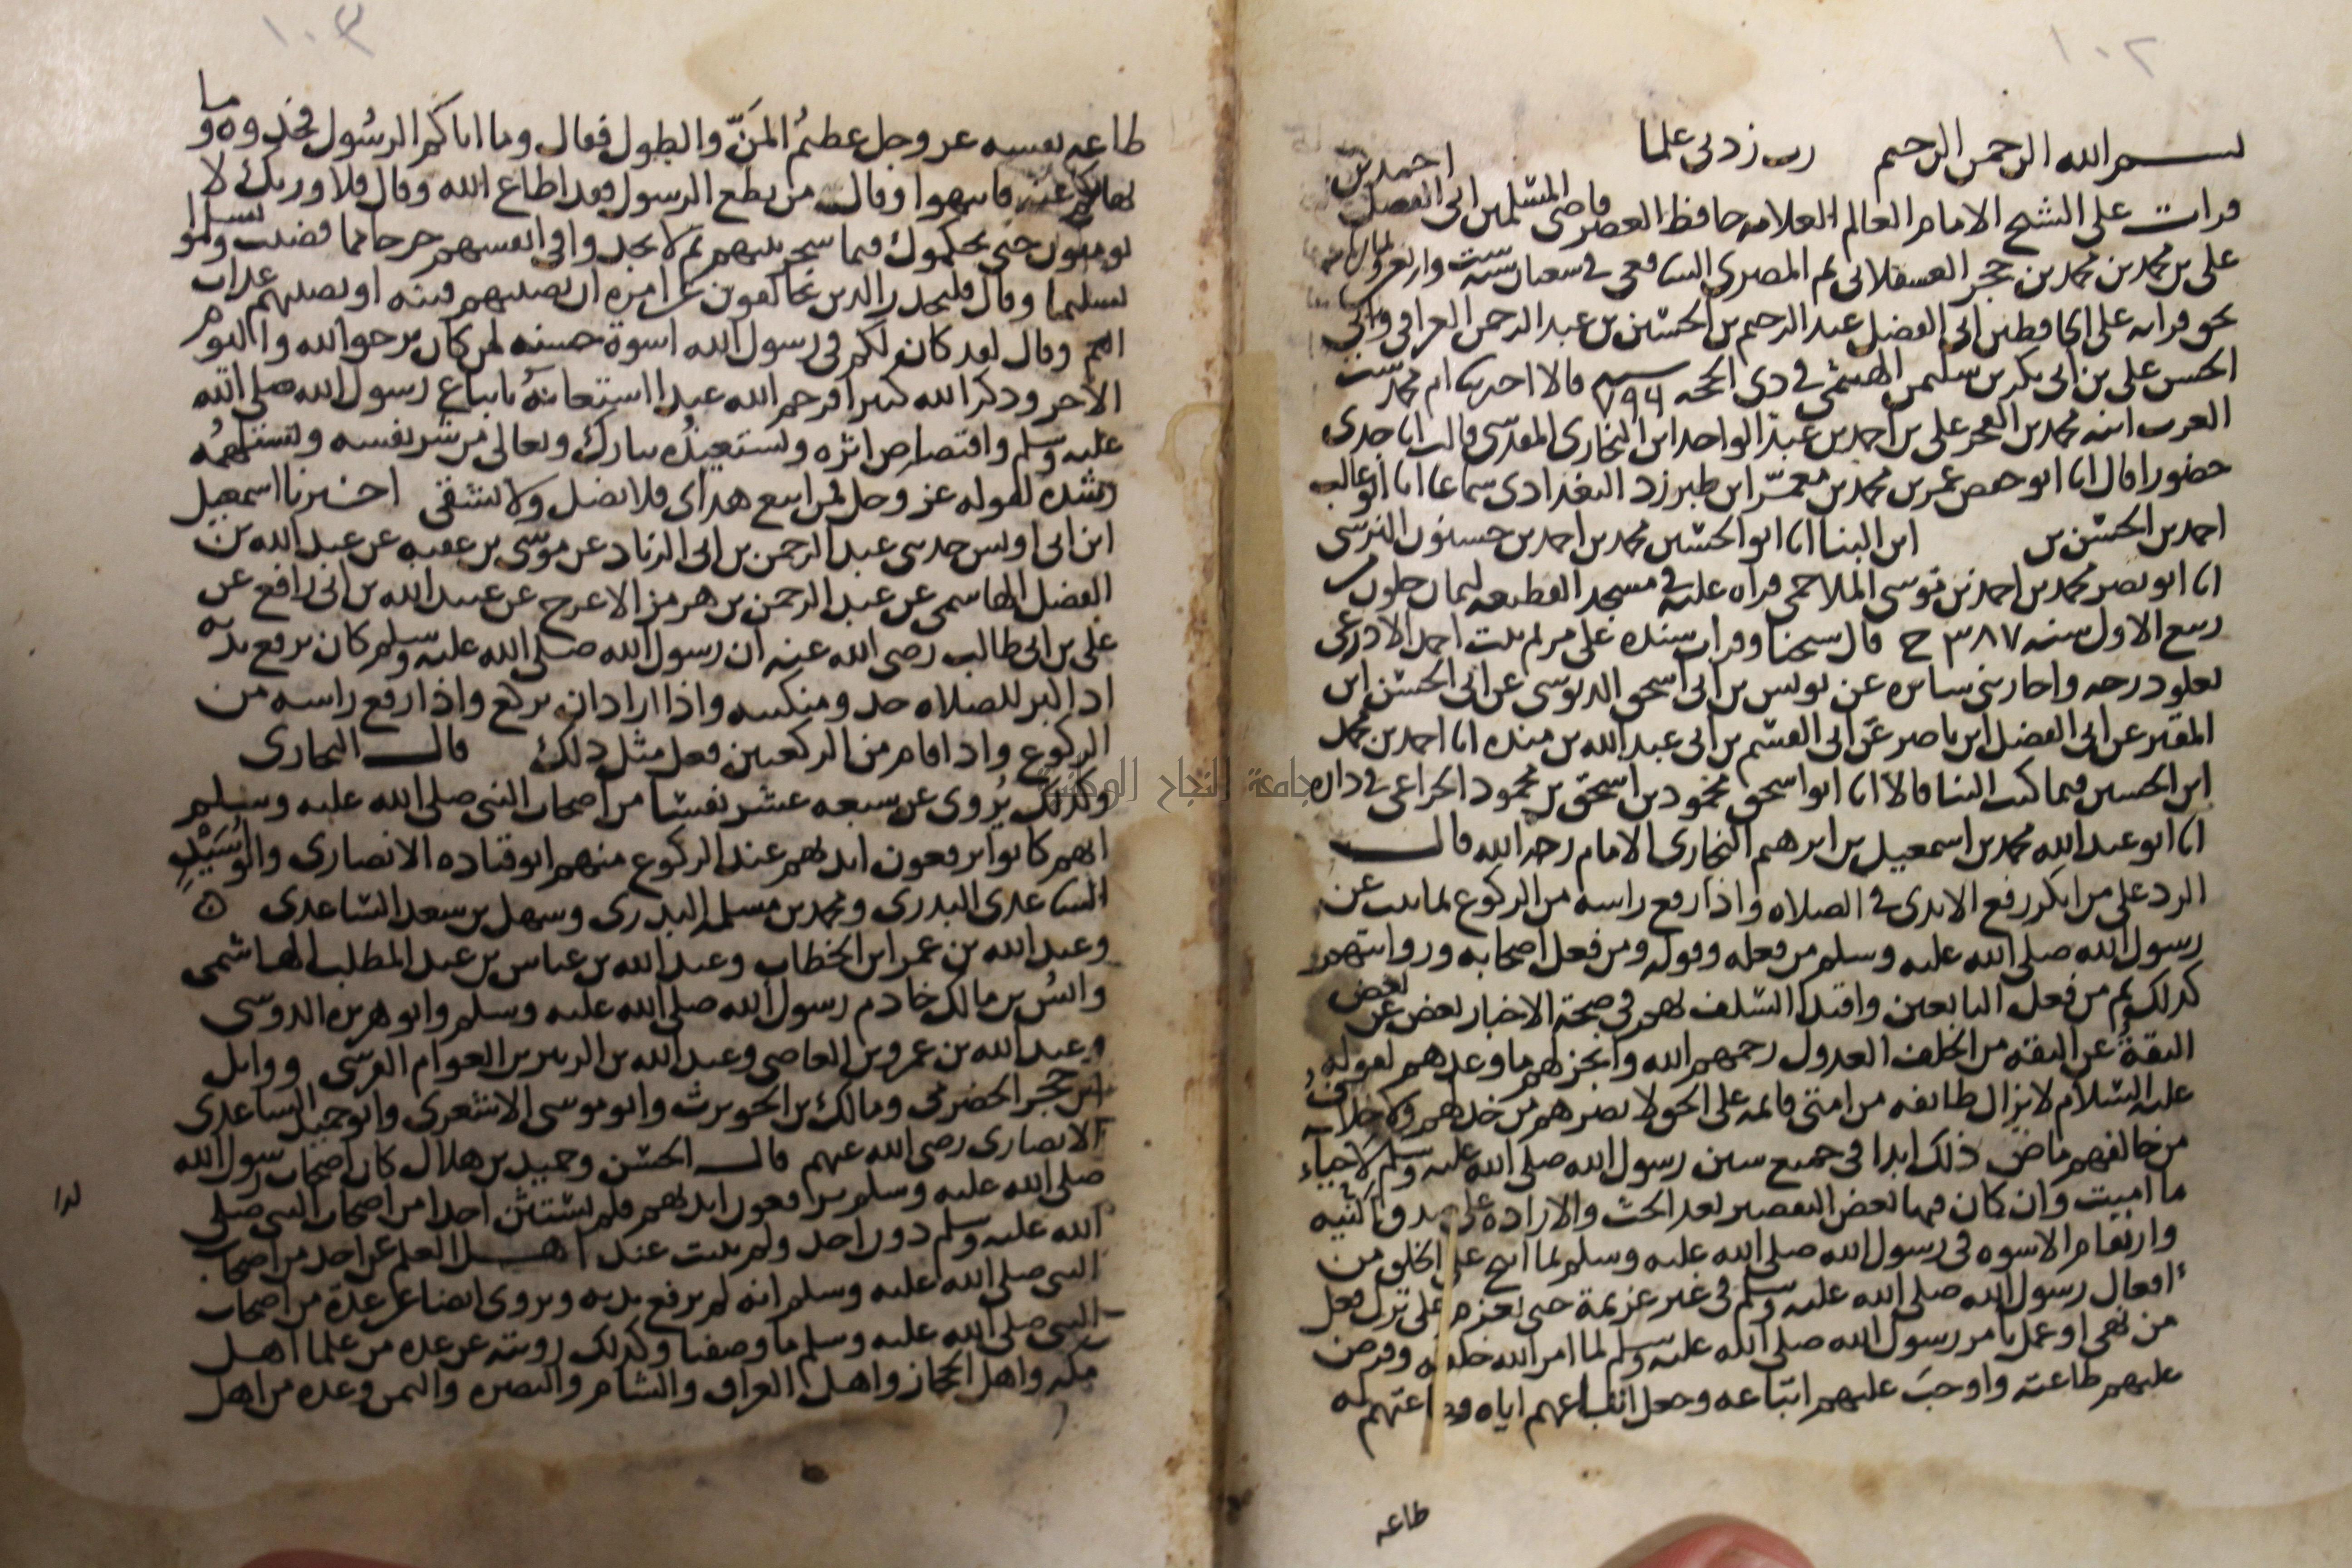 ١٠٢
بسم الله الرحمن الرحيم رب زدنى علما
قرات على الشيخ الامام العالم العلامه حافظ العصر قاضى المسلمين ابى الفضل احمد بن
على بن محمد بن محمد بن حجر العسقلانى ثم المصرى الشافعى فى شعبان سنة ست واربعين
بحق قراته على الحافظين ابى الفضل عبد الرحيم بن الحسين بن عبد الرحمن العراقى وابى
الحسن على بن ابى بكر بن سليمن الهيثمى فى ذى الحجه سنه ٧٩٤ قالا اخبرتنا ام محمد ست
العرب ابنة محمد بن الفخر على بن احمد بن عبد الواحد ابن البخارى المقدسى قالت انا جدى
حضورا قال انا ابو حفص عمر بن محمد بن معمر ابن طبرزد البغدادى سماعا انا ابو غالب
احمد بن الحسن بن ابن البنا انا ابو الحسين محمد بن احمد بن حسنون النرسى
انا ابو نصر محمد بن احمد بن موسى الملاحمى قراه عليه فى مسجد القطيعه لثمان خلون من
ربيع الاول سنه ٣٨٧ ح قال شيخنا وقرات بسنده على مريم بنت احمد الاذرعى
بعلو درجه واجازتى سايره عن يونس بن ابى اسحق الدبوسى عن ابى الحسن ابن
المقير عن ابى الفضل ابن ناصر عن ابى القسم بن ابى عبد الله بن منده انا احمد بن محمد
ابن الحسين فيما كتب الينا قالا انا ابو اسحق محمود بن اسحق بن محمود الخزاعى فى داره
انا ابو عبد الله محمد بن اسمعيل بن ابرهيم البخارى الامام رحمه الله قال
الرد على من انكر رفع الايدى فى الصلاه واذا رفع راسه من الركوع بما ثبت عن
رسول الله صلى الله عليه وسلم من فعله وقوله ومن فعل اصحابه وروايتهم
كذلك ثم من فعل التابعين واقتدا السلف بهم فى صحة الاخبار بعض عن بعض
الثقة عن الثقه من الخلف العدول رحمهم الله وانجز لهم ما وعدهم لقوله
عليه السلام لا يزال طائفه من امتى قائمه على الحق لا يضرهم من خذلهم ولا خلاف
من خالفهم ماض ذلك ابدا فى جميع سنن رسول الله صلى الله عليه وسلم لاحياء
ما اميت وان كان فيها بعض التقصير بعد الحث والاراده
وارتقام الاسوه فى رسول الله صلى الله عليه وسلم على الخلق من
افعال رسول الله صلى الله عليه وسلم فى غير عزيمة حتى يعزم على ترك فعل
من نهى او عمل بامر رسول الله صلى الله عليه وسلم لما امر الله خلقه وفرض
عليهم طاعته واوجب عليهم اتباعه وجعل اتباعهم اياه وطاعتهم له
طاعه
١٠٣
طاعه نفسه عز وجل عظيم المن والطول فقال وما اتاكم الرسول فخذوه وما
نهاكم عنه فانتهوا وقال من يطع الرسول فقد اطاع الله وقال فلا وربك لا
يومنون حتى يحكموك فيما شجر بينهم ثم لا يجدوا فى انفسهم حرجا مما قضيت ويسلموا
تسليما وقال فليحذر الذين يخالفون عن امره ان تصيبهم فتنه او يصيبهم عذاب
اليم وقال لقد كان لكم فى رسول الله اسوة حسنه لمن كان يرجو الله واليوم
الاخر وذكر الله كثيرا فرحم الله عبدا استعانه باتباع رسول الله صلى الله
عليه وسلم واقتصاص اثره ونستعيذه تبارك وتعالى من شر نفسه ونستلهمه
رشده لقوله عز وجل فمن اتبع هداى فلا يضل ولا يشقى اخبرنا اسمعيل
ابن ابى اويس حدثنى عبد الرحمن بن ابى الزناد عن موسى بن عقبه عن عبد الله بن
الفضل الهاشمى عن عبد الرحمن بن هرمز الاعرج عن عبيد الله بن ابى رافع عن
على بن ابى طالب رضى الله عنه ان رسول الله صلى الله عليه وسلم كان يرفع يديه
اذا كبر للصلاه حذو منكبيه واذا اراد ان يركع واذا رفع راسه من
الركوع واذا قام من الركعتين فعل مثل ذلك قال البخارى
وكذلك يروى عن سبعه عشر نفسا من اصحاب النبى صلى الله عليه وسلم
انهم كانوا يرفعون ايديهم عند الركوع منهم ابو قتاده الانصارى وابو اسيد
الساعدى البدرى ومحمد بن مسلمه البدرى وسهل بن سعد الساعدى
وعبد الله بن عمر ابن الخطاب وعبد الله بن عباس بن عبد المطلب الهاشمى
وانس بن مالك خادم رسول الله صلى الله عليه وسلم وابو هريره الدوسى
وعبد الله بن عمرو بن العاصى وعبد الله بن الزبير بن العوام القرشى ووايل
ابن حجر الحضرمى ومالك بن الحويرث وابو موسى الاشعرى وابو حميد الساعدى
الانصارى رضى الله عنهم قال الحسن وحميد بن هلال كان اصحاب رسول الله
صلى الله عليه وسلم يرافعون ايديهم فلم يستثن احدا من اصحاب النبى صلى
الله عليه وسلم دون احد ولم يثبت عند اهل العلم عن احد من اصحاب
النبى صلى الله عليه وسلم انه لم يرفع يديه ويروى ايضا عن عدة من اصحاب
النبى صلى الله عليه وسلم ما وصفنا وكذلك رويته عن عده من علما اهل
مكه واهل الحجاز واهل العراق والشام والبصره واليمن وعده من اهل
جامعة النجاح الوطنية